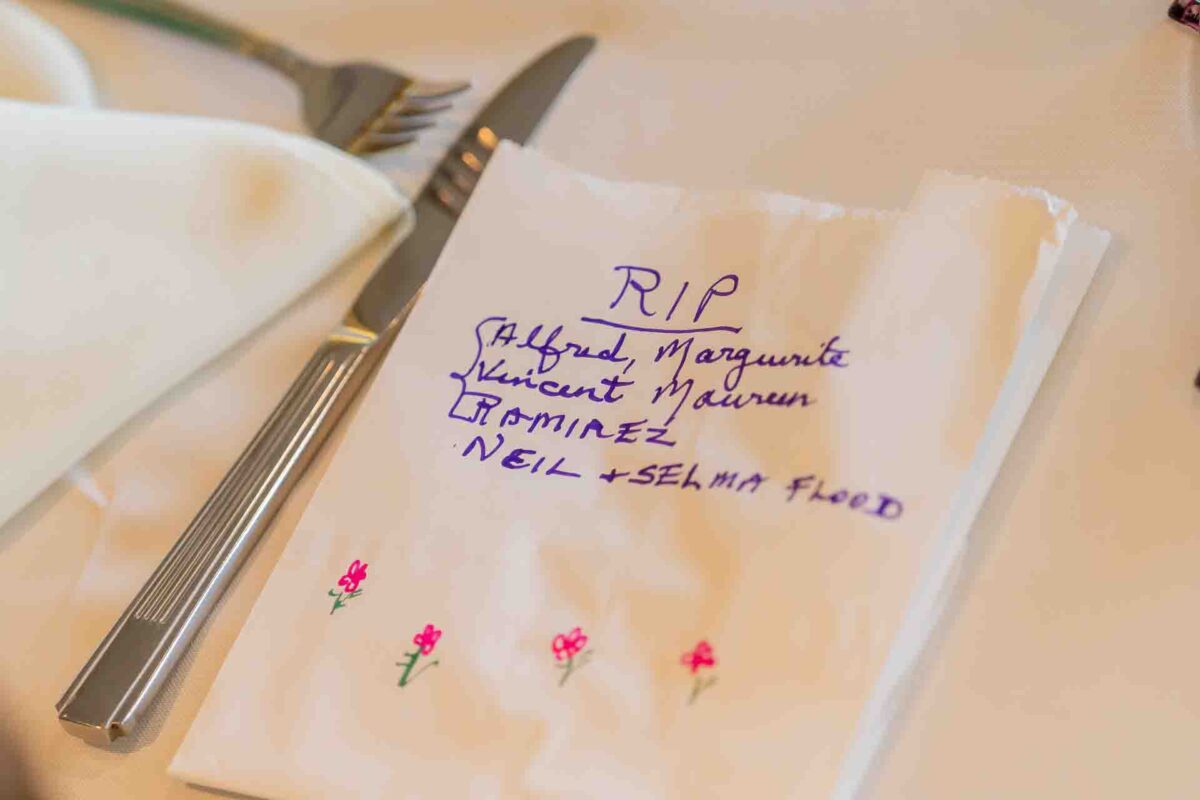 RIP
Alfred, Marguerite
Vincent Maureen
RAMIREZ
NEIL + SELMA FLOOD